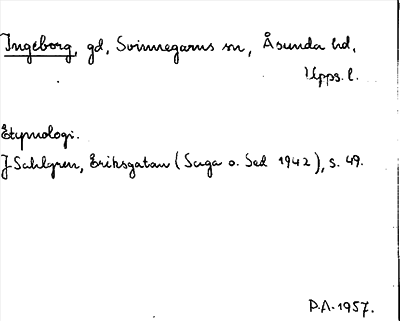 Ingeborg, gd, Svinnegarns sn, Åsunda hd,
Upps. l.
Etymologi.
J Sahlgren, Eriksgatan (Saga o. Sed 1942), s. 49.
P.A. 1957.